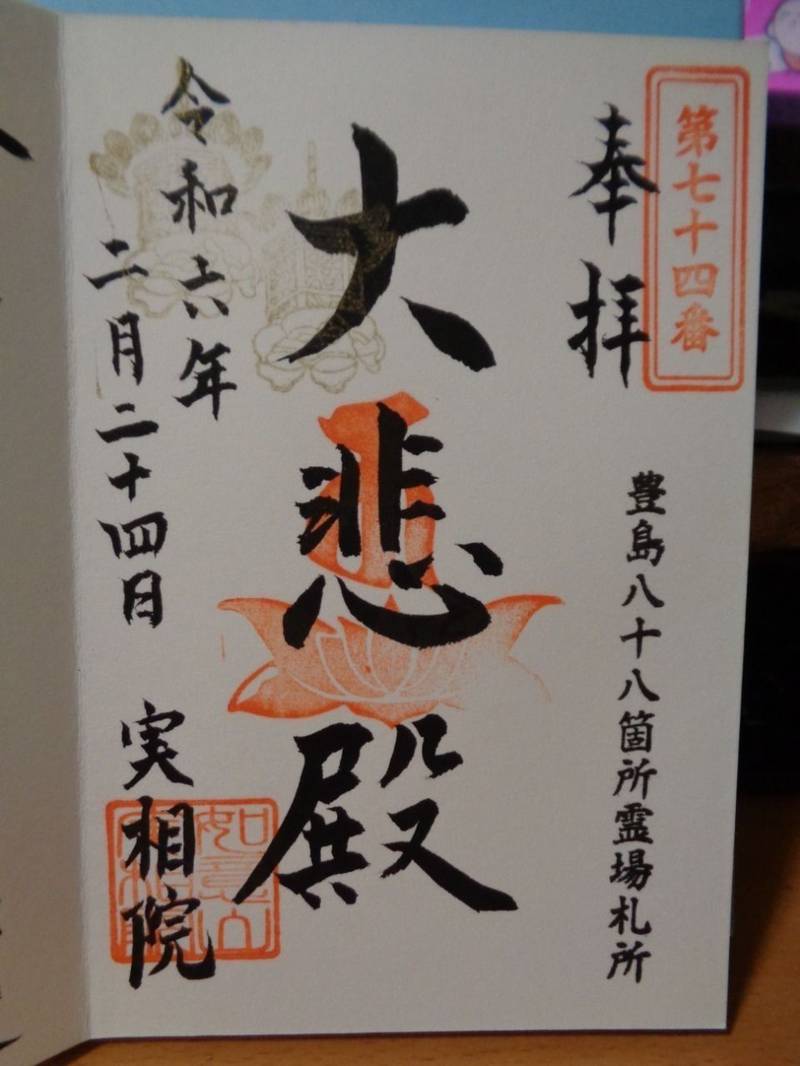 第七十四番
奉拝
豊島八十八箇所霊場札所
大悲殿
令和六年
二月二十四日
実相院